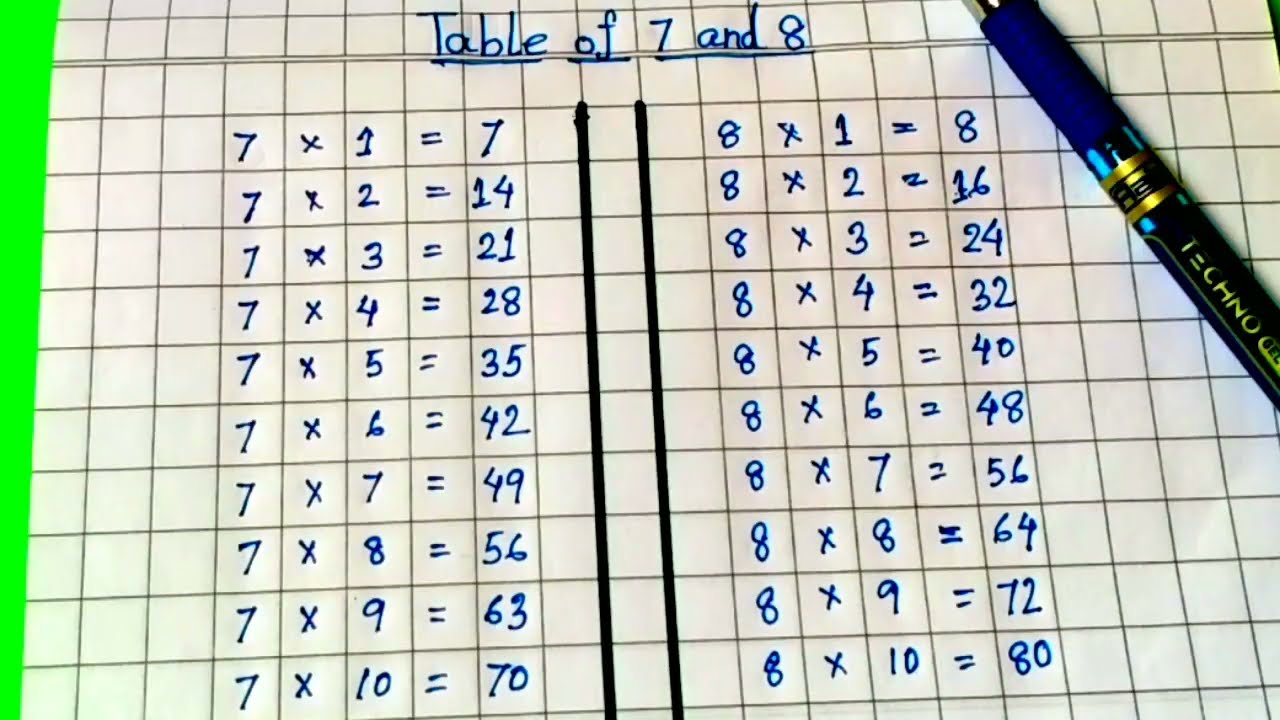 Table of 7 and 8
7 × 1 = 7
7 × 2 = 14
7 × 3 = 21
7 × 4 = 28
7 × 5 = 35
7 × 6 = 42
7 × 7 = 49
7 × 8 = 56
7 × 9 = 63
7 × 10 = 70
8 × 1 = 8
8 × 2 = 16
8 × 3 = 24
8 × 4 = 32
8 × 5 = 40
8 × 6 = 48
8 × 7 = 56
8 × 8 = 64
8 × 9 = 72
8 × 10 = 80
TECHNO